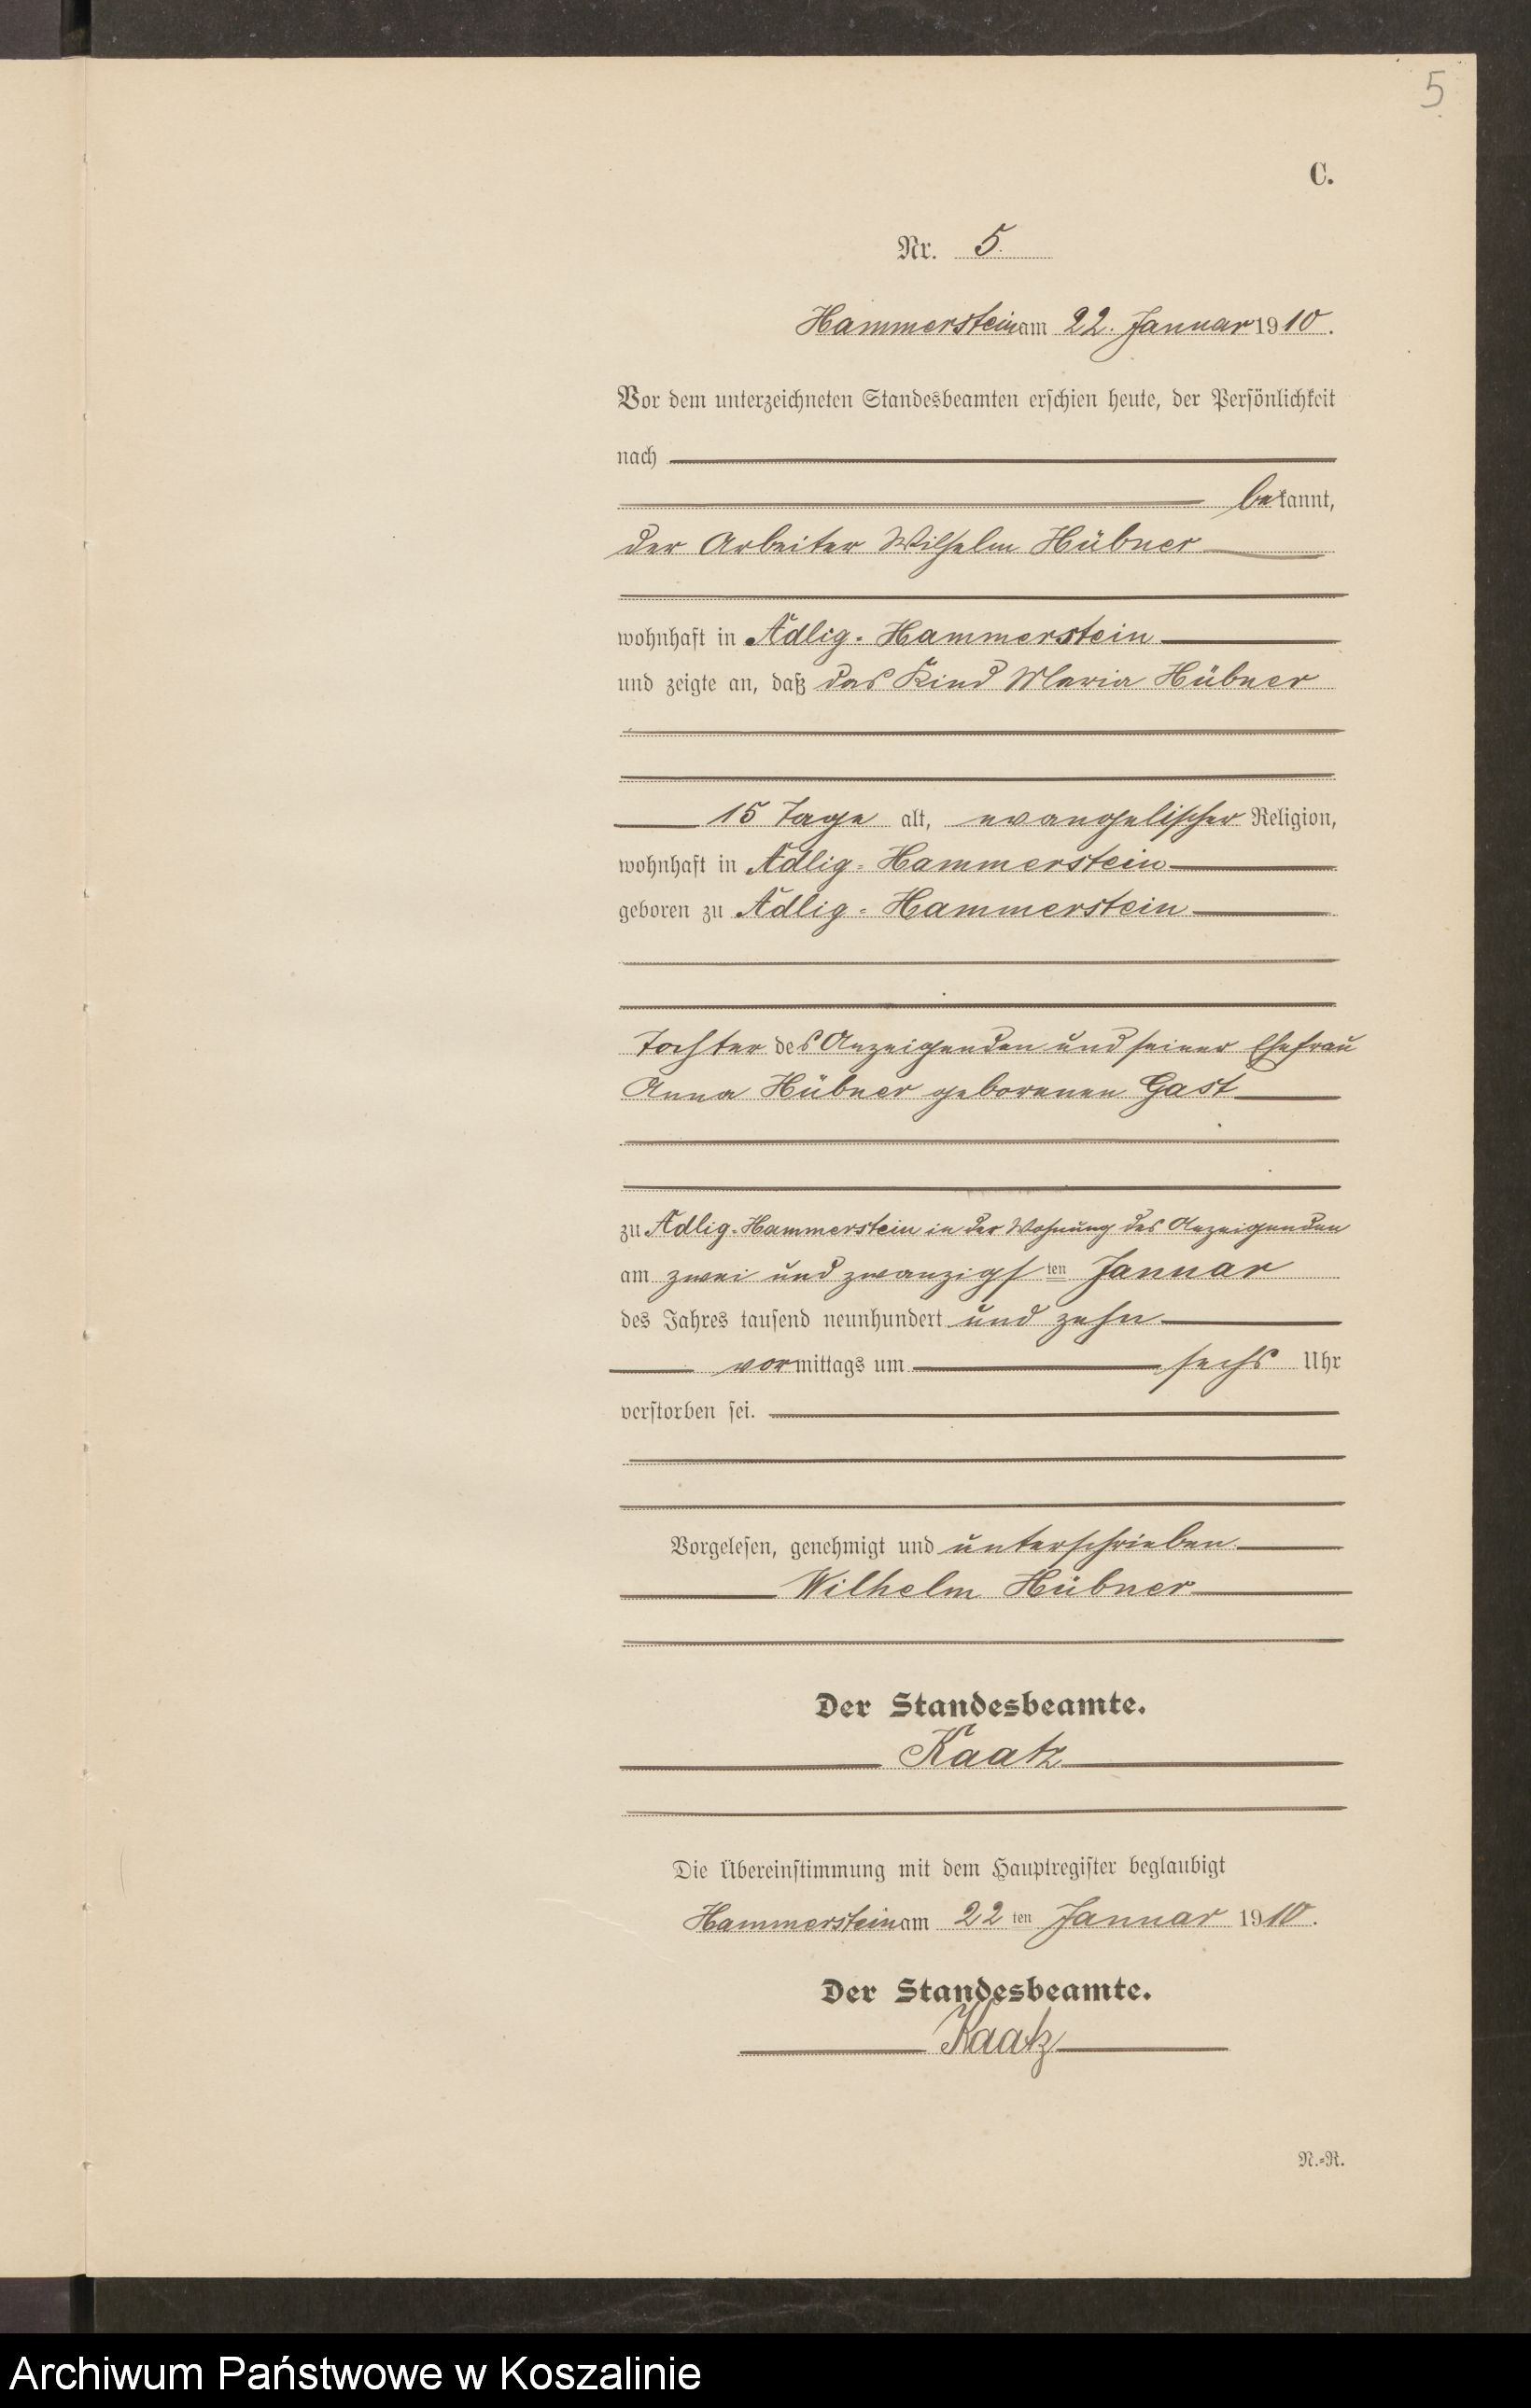 5
C.
Nr. 5.
Hammerstein am 22. Januar 1910.
Vor dem unterzeichneten Standesbeamten erschien heute, der Persönlichkeit
nach
bekannt,
der Arbeiter Wilhelm Hübner
wohnhaft in Adlig-Hammerstein
und zeigte an, daß das Kind Maria Hübner
15 Tage alt, evangelischer Religion,
wohnhaft in Adlig-Hammerstein
geboren zu Adlig-Hammerstein
Tochter des Anzeigenden und seiner Ehefrau
Anna Hübner geborenen Gast
zu Adlig-Hammerstein in der Wohnung des Anzeigenden
am zwei und zwanzigsten Januar
des Jahres tausend neunhundert und zehn
vormittags um sechs Uhr
verstorben sei.
Vorgelesen, genehmigt und unterschrieben
Wilhelm Hübner
Der Standesbeamte.
Kaatz
Die Übereinstimmung mit dem Hauptregister beglaubigt
Hammerstein am 22ten Januar 1910.
Der Standesbeamte.
Kaatz
N.=R.
Archiwum Państwowe w Koszalinie